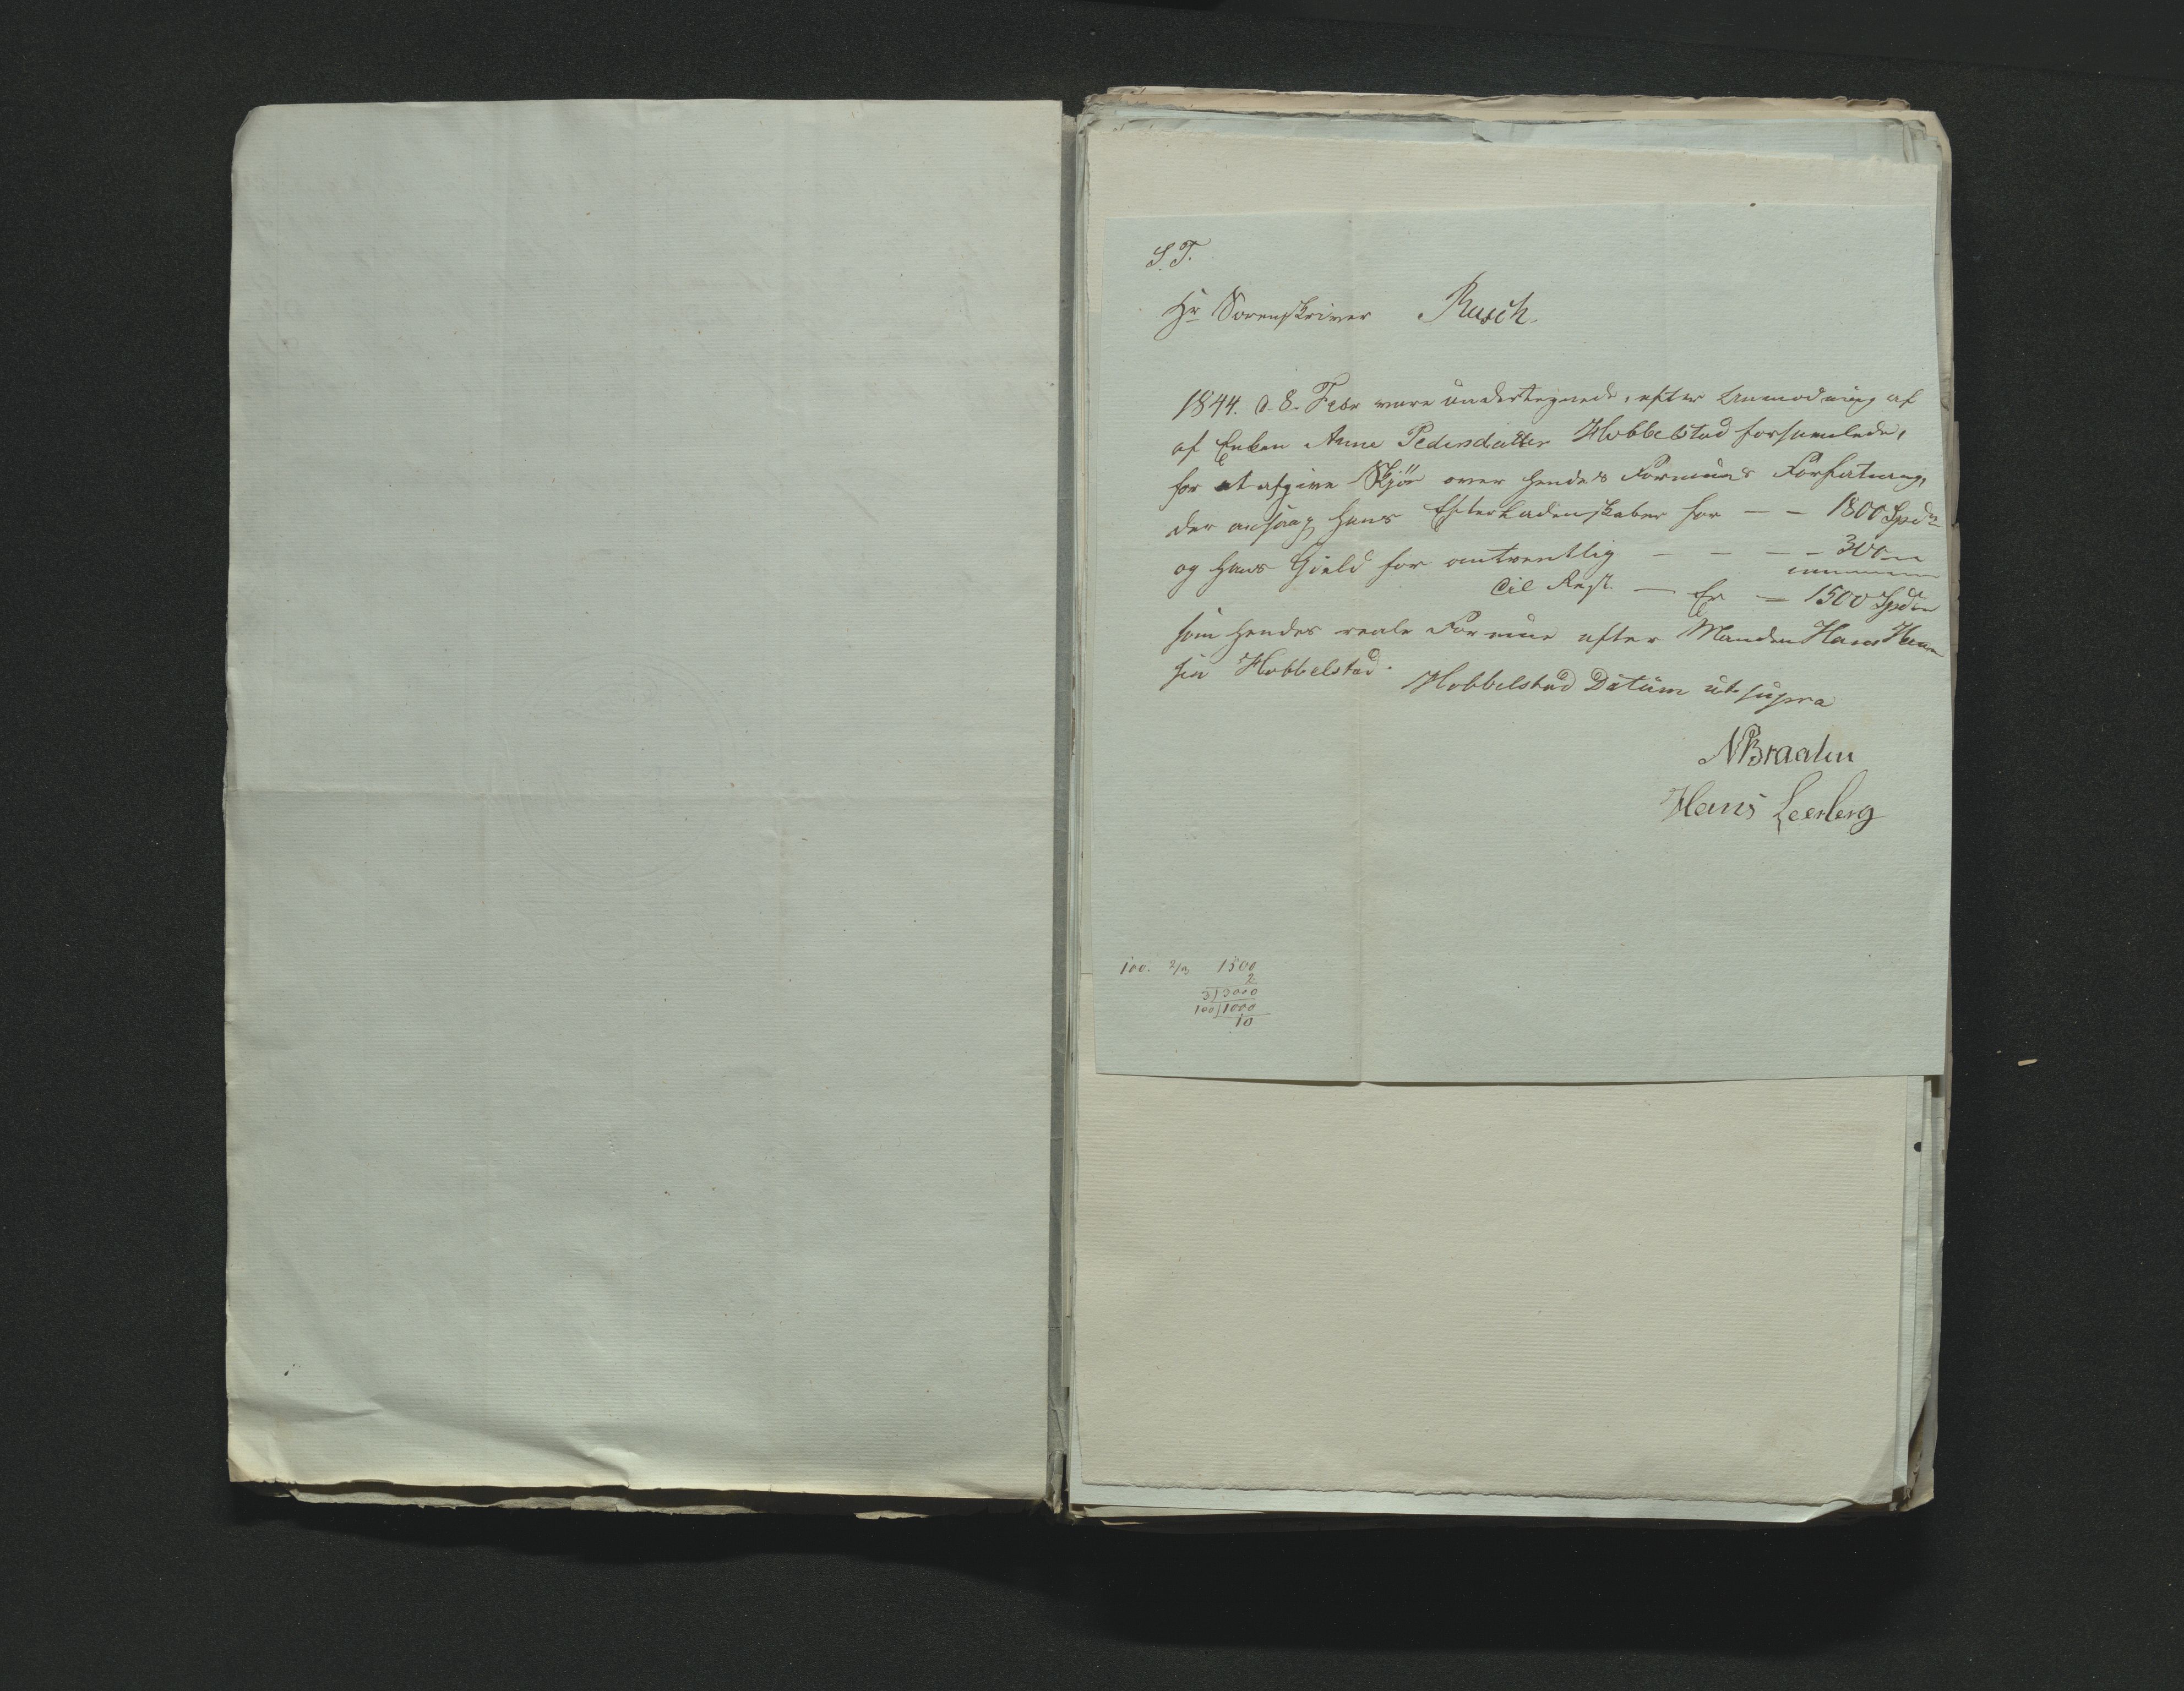 S. T.
Hr Sorenskriver Rasch.
1844. d. 8. Febr vare undertegnede, efter Anmodning af
af Enken Anne Pedersdatter Hobbelstad forsamlede,
for at afgive Skjøn over hendes Formues Forfatning,
der ansaaes hans Efterladenskaber for — — 1800 Spd
og hans Gield for omtrentlig — — — — 300
til Rest — Er — 1500 Spd
som hendes reale Formue efter Manden Hans Han
sen Hobbelstad.
Hobbelstad Datum ut supra
NBraaten
Hans Leerberg
100. 2/3 1500
2
3/3000
100/1000
10